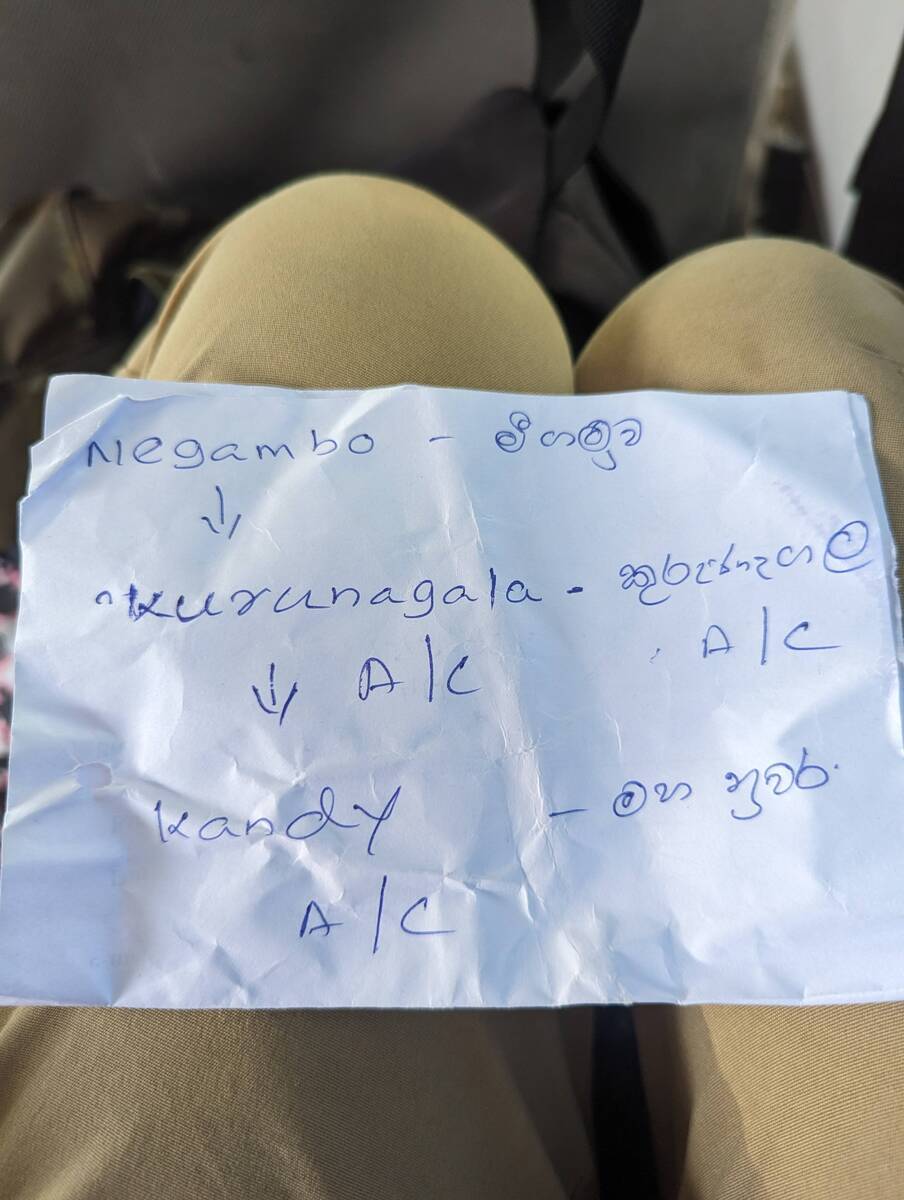 Negambo - මීගමුව
↓
Kurunagala - කුරුණෑගල
↓ A/C A/C
Kandy - මහ නුවර.
A/C